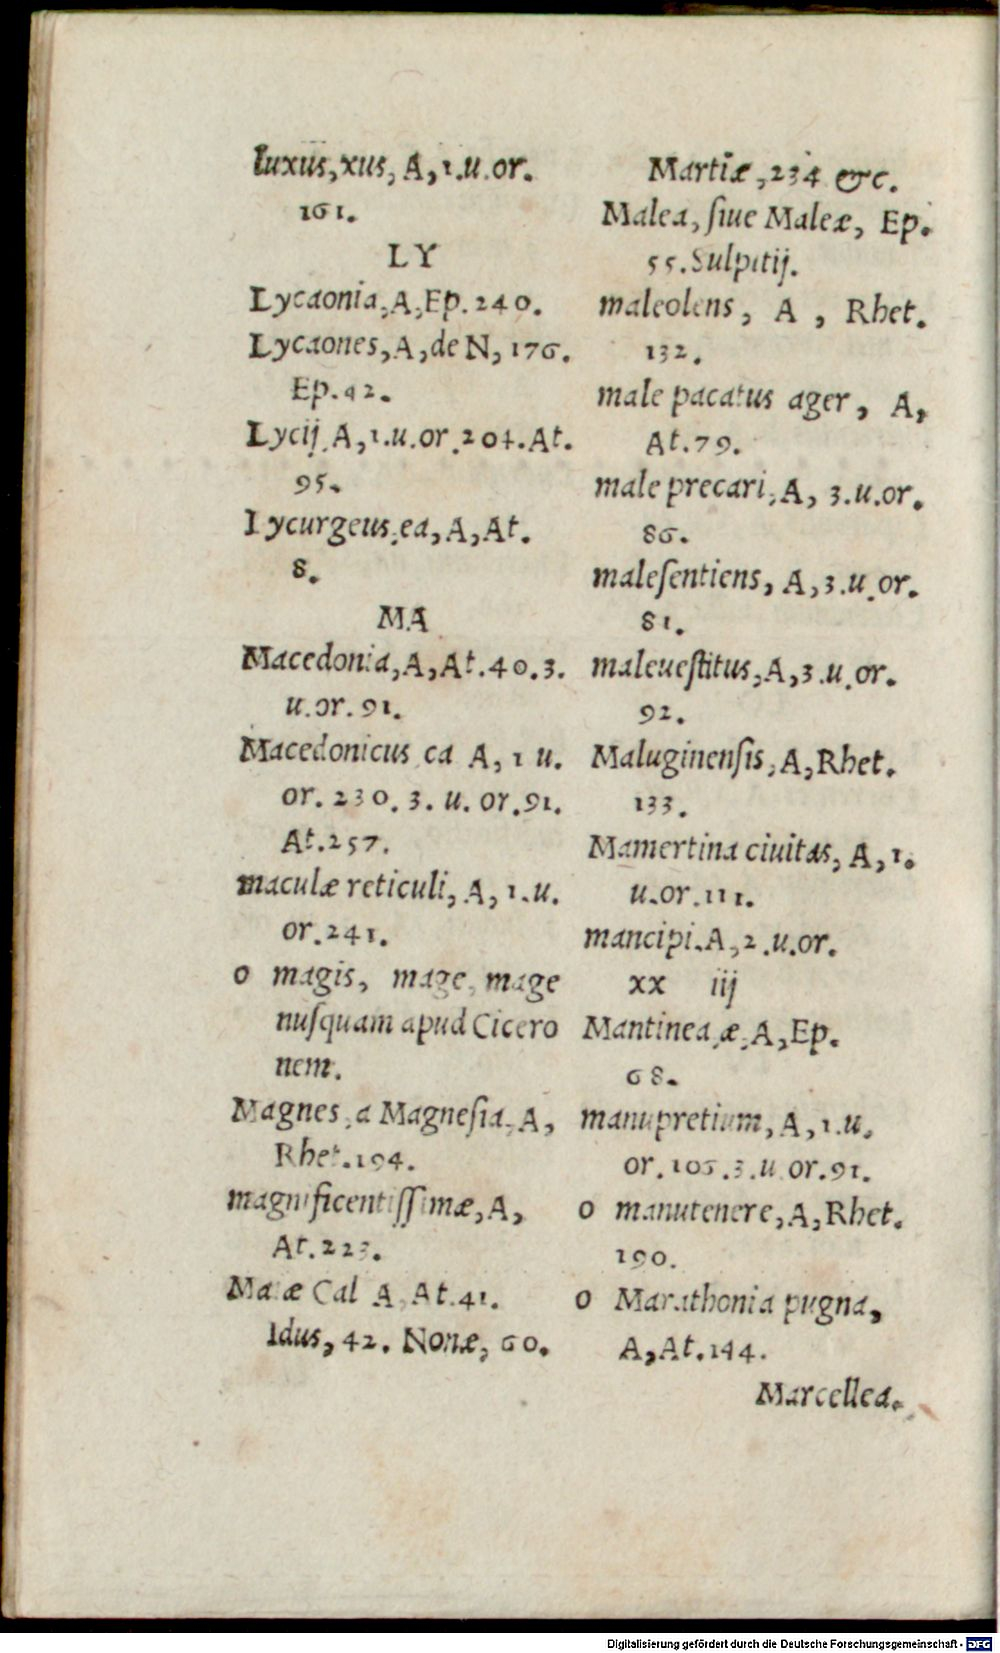 luxus, xus, A, 1.u.or.
161.
LY
Lycaonia, A, Ep. 240.
Lycaones, A, de N, 176.
Ep. 42.
Lycij, A, 1.u.or. 204. At.
95.
Lycurgeus, ea, A, At.
8.
MA
Macedonia, A, At. 40. 3.
u. or. 91.
Macedonicus ca A, 1 u.
or. 230. 3. u. or. 91.
At. 257.
maculæ reticuli, A, 1.u.
or. 241.
o magis, mage, mage
nuſquam apud Cicero
nem.
Magnes, a Magneſia, A,
Rhet. 194.
magnificentiſſimæ, A,
At. 223.
Maiæ Cal A, At. 41.
Idus, 42. Nonæ, 60.
Martiæ, 234 &c.
Malea, ſiue Maleæ, Ep.
55. Sulpitij.
maleolens, A, Rhet.
132.
male pacatus ager, A,
At. 79.
male precari, A, 3.u.or.
86.
maleſentiens, A, 3.u.or.
81.
maleueſtitus, A, 3.u.or.
92.
Maluginenſis, A, Rhet.
133.
Mamertina ciuitas, A, 1.
u.or. 111.
mancipi. A, 2.u.or.
xx iij
Mantinea, æ, A, Ep.
68.
manupretium, A, 1.u.
or. 105. 3.u or. 91.
o manutenere, A, Rhet.
190.
o Marathonia pugna,
A, At. 144.
Marcellea.
Digitalisierung gefördert durch die Deutsche Forschungsgemeinschaft - DFG